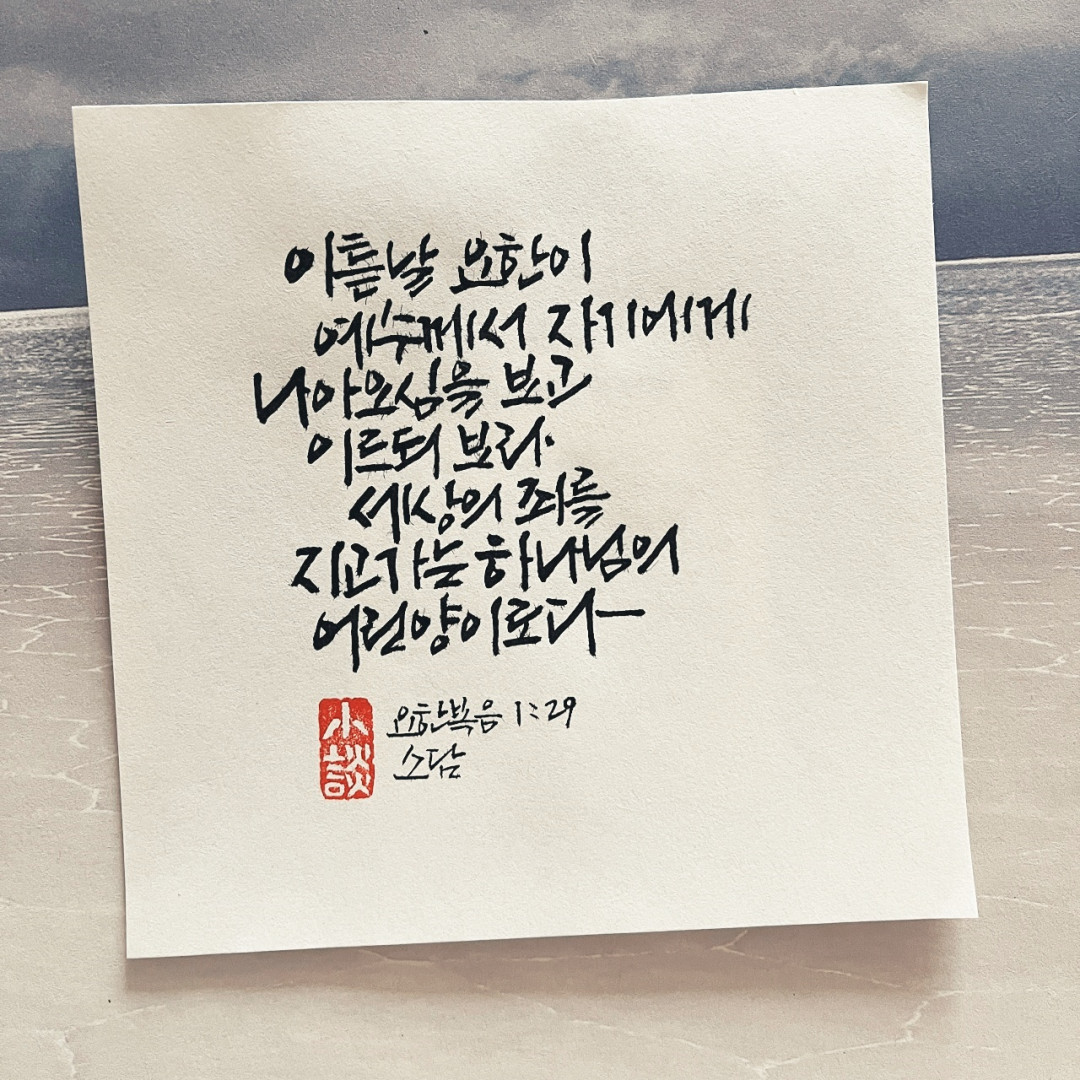 이튿날 요한이
예수께서 자기에게
나아오심을 보고
이르되 보라.
세상의 죄를
지고가는 하나님의
어린양이로다
小談
요한복음 1:29
소담